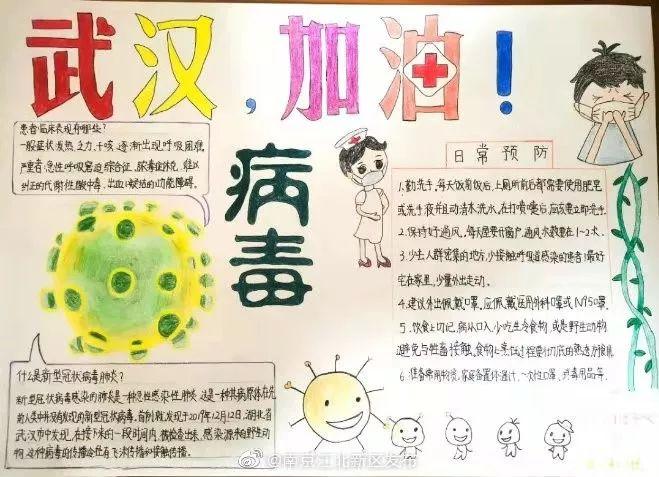 武汉,加油!
患者临床表现有哪些?
一般症状发热、乏力、干咳、逐渐出现呼吸困难
严重者:急性呼吸窘迫综合征、脓毒症休克、难以
纠正的代谢性酸中毒、出血凝结的功能障碍。
病毒
日常预防
1.勤洗手,每天饭前饭后,上厕所前后都需要使用肥皂
或洗手液并且动清水洗水,在打喷嚏后应该要立即洗手.
2.保持好通风,每天屋要开窗户,通风次数要在1-2次.
3.少上人群密集的地方,少接触呼吸道感染的患者!最好
宅在家里,少量外出走动.
4.建议外出佩戴口罩,应佩戴医用外科口罩或N95口罩.
5.饮食上切记,病从口入,少吃生冷食物,或是野生动物
避免与牲畜接触,食物上烹饪过程要
6.准备常用物资,家庭备置体温计,一次性口罩、消毒用品等.
什么是新型冠状病毒肺炎?
新型冠状病毒感染的肺炎是一种急性感染性肺炎,这是一种其病原体在先
前人类中并没有发现的新型冠状病毒,首例就发现于2019年12月12日,湖北省
武汉市中发现,在接下来的一段时间内,被检查出来,感染源来自野生动
物,这种病毒的传播途径有飞沫传播和接触传播.
@南京江北新区发布